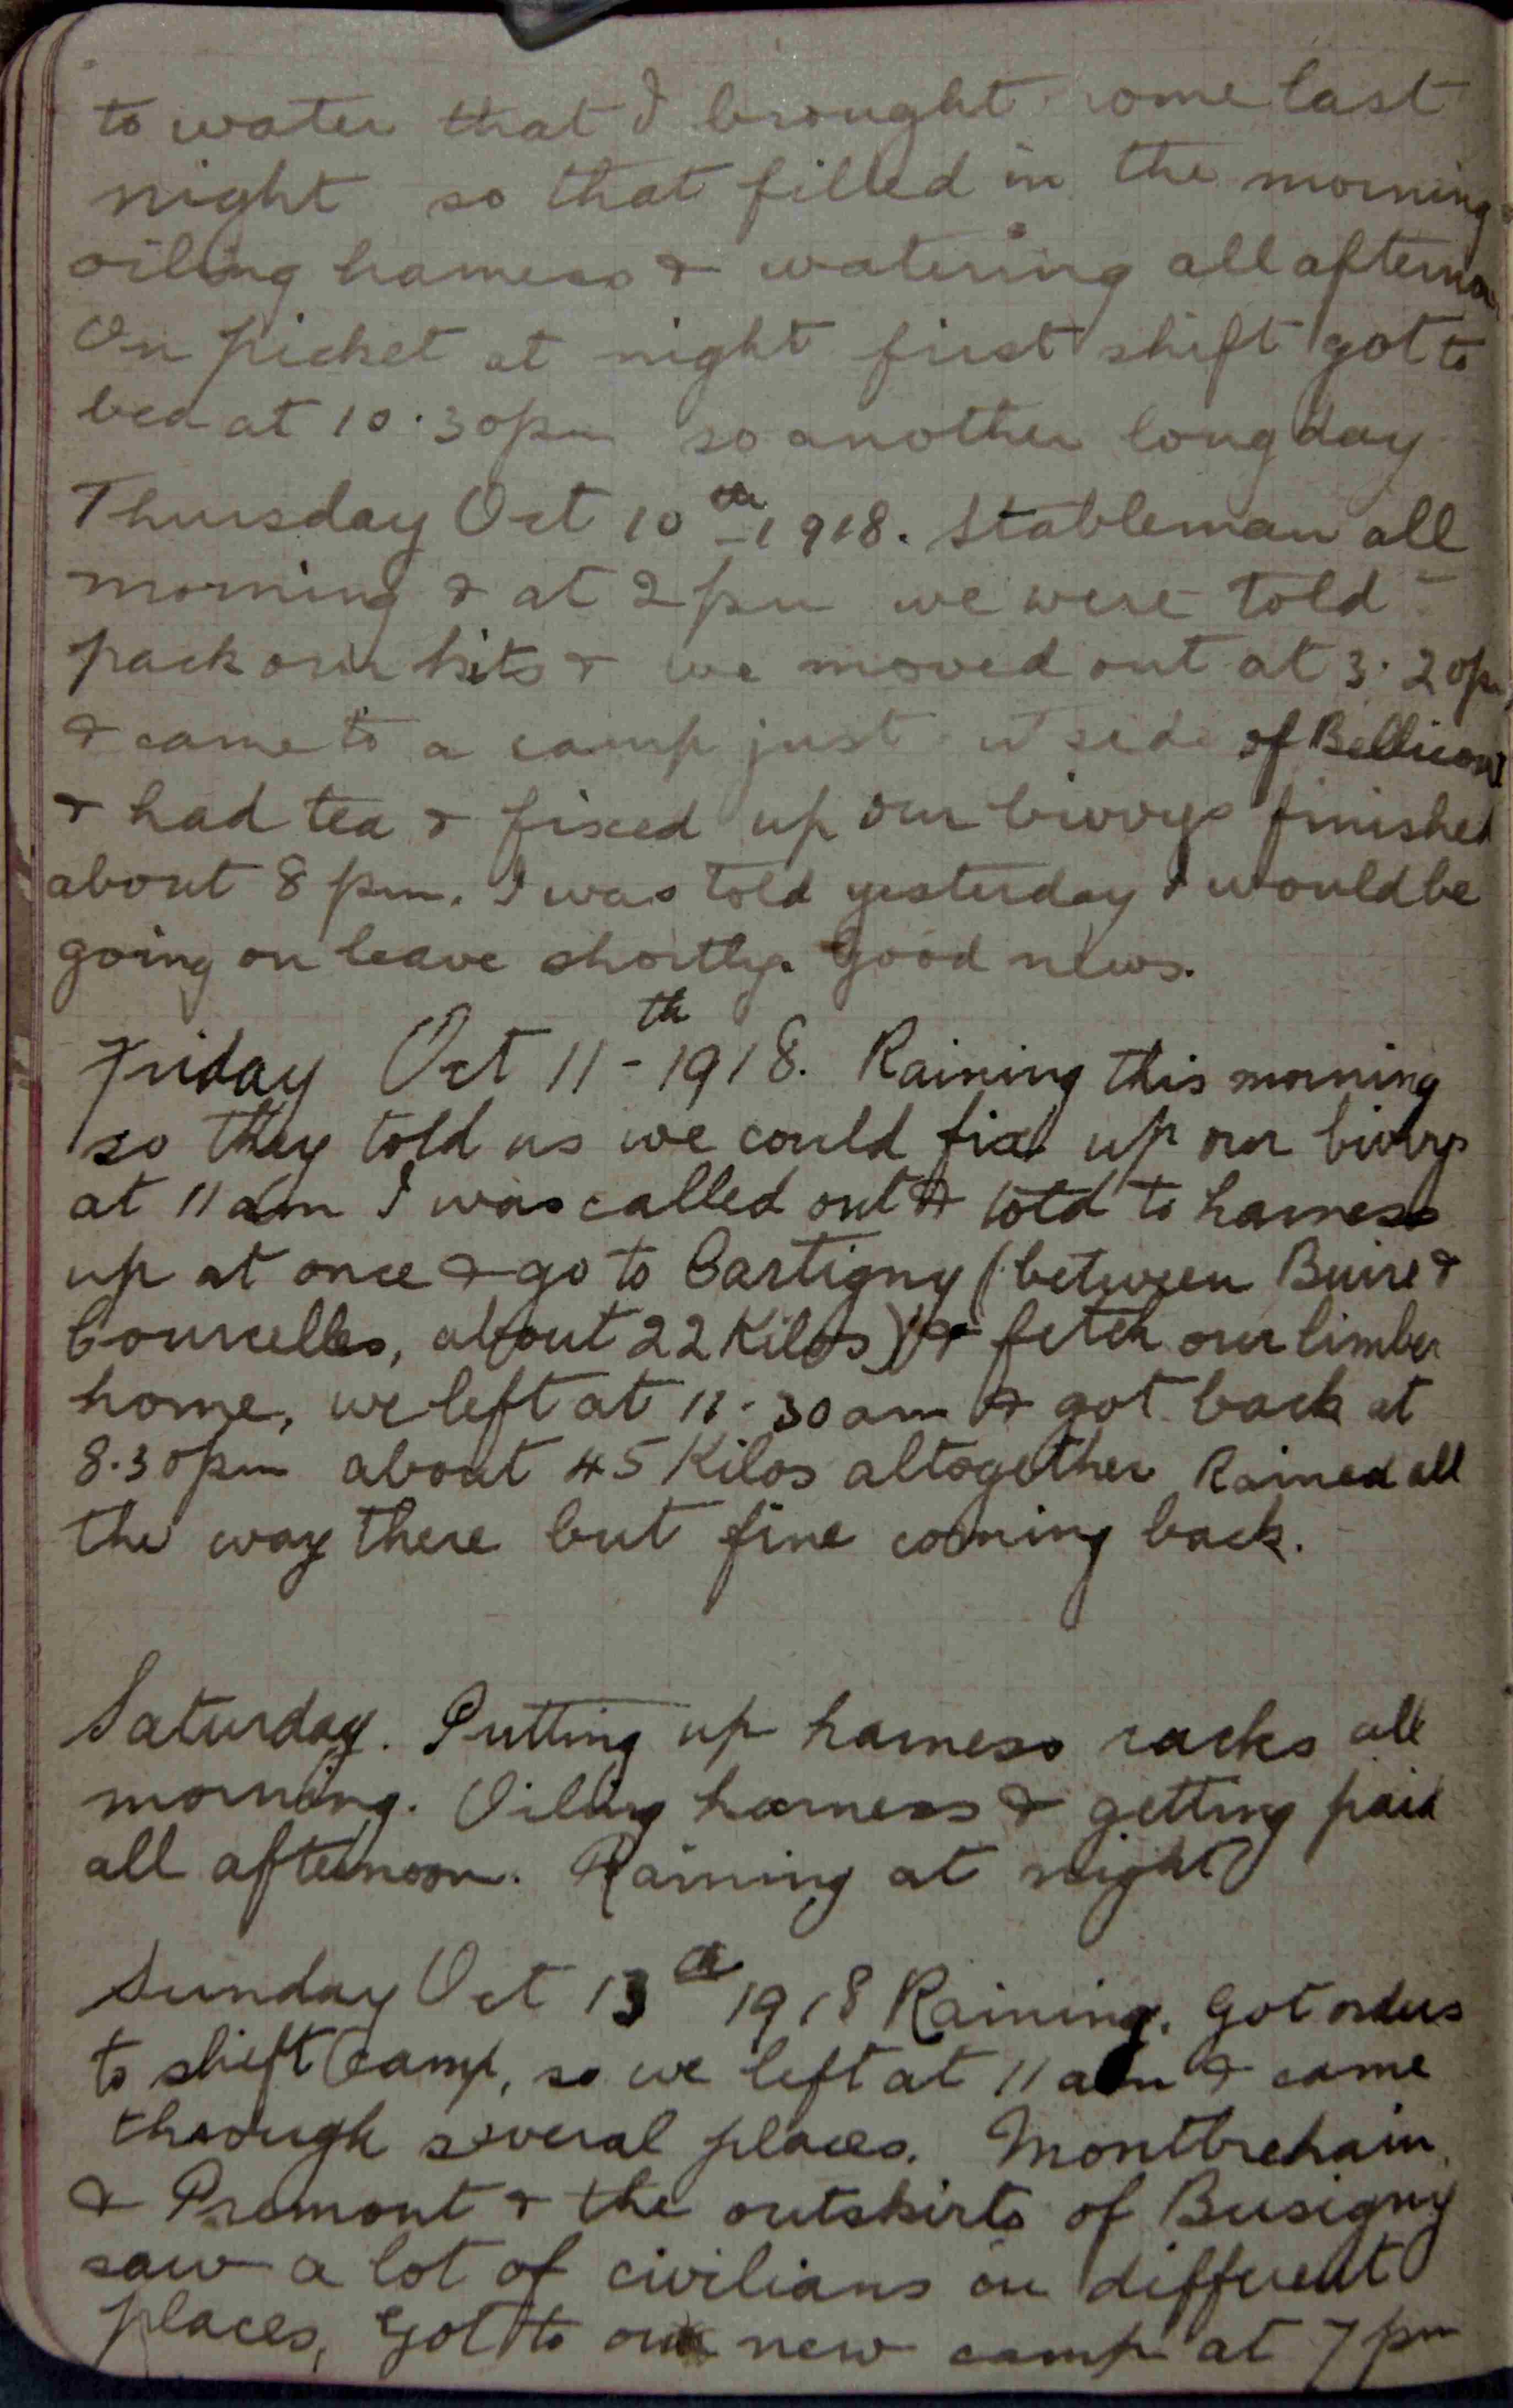 to water that I brought home last
night so that filled in the morning
oiling harness & watering all afternoon
On picket at night first shift got to
bed at 10.30pm so another long day
Thursday Oct 10th 1918. Stableman all
morning & at 2pm we were told
pack our kits & we moved out at 3.20pm
& came to a camp just side of Bellicourt
& had tea & fixed up our bivvys finished
about 8pm. I was told yesterday I would be
going on leave shortly. Good news.
Friday Oct 11th 1918. Raining this morning
so they told us we could fix up our bivvys
at 11am I was called out & told to harness
up at once & go to Cartigny (between Buire &
Courcelles, about 22 Kilos) & fetch our limber
home, we left at 11.30am & got back at
8.30pm about 45 Kilos altogether Rained all
the way there but fine coming back.
Saturday. Putting up harness racks all
morning. Oiling harness & getting paid
all afternoon. Raining at night
Sunday Oct 13th 1918 Raining. Got orders
to shift camp, so we left at 11am & came
through several places. Montbrehain
& Premont & the outskirts of Busigny
saw a lot of civilians in different
places, Got to our new camp at 7pm